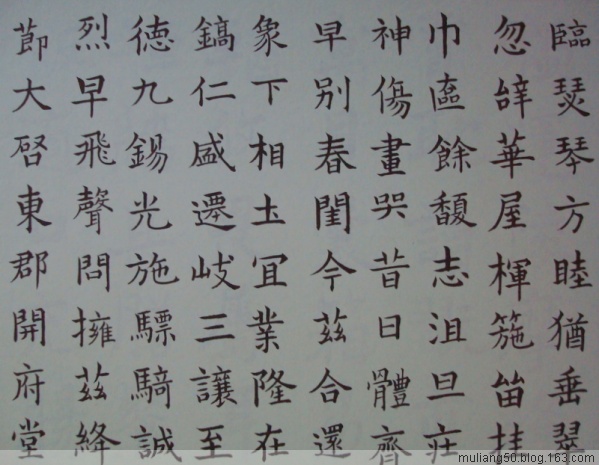 臨瑟琴方睦猶垂翠
忽辝華屋楎箷笛挂
巾區餘馥志沮旦莊
神傷晝哭昔日體齊
早別春閨今茲合還
象下相土冝業隆在
鎬仁盛遷岐三讓至
徳九錫光施驃騎誠
烈早飛聲問擁茲絳
節大啓東郡開府堂
muliang50.blog.163.com